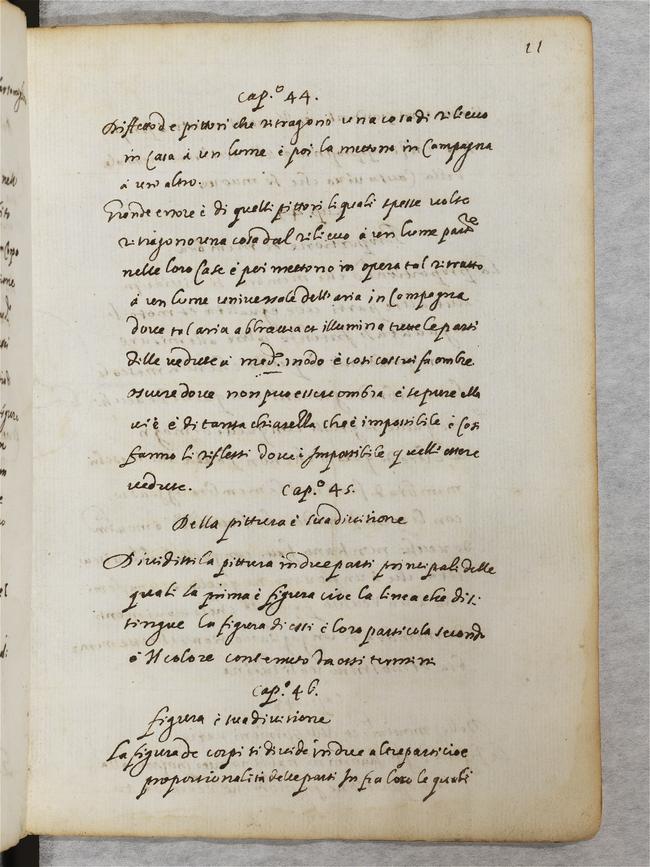 11
Cap.º 44.
Diffetto de pittori che ritragono una cosa di rilievo
in Casa à un lume è poi la mettono in Campagna
à un altro.
Grande errore è di quelli pittori li quali spesse volte
ritragono una cosa dal rilievo à un lume part.re
nelle loro Case è poi mettono in opera tal ritratto
à un lume universale dell'aria in Compagna
dove tal aria abbraccia et illumina tutte le parti
delle vedute à med.º modo è così costui fa ombre
oscure dove non può essere ombra è se pure ella
vi è è di tanta chiarella che è impossibile è così
fanno li riflessi dove è Impossibile quelli essere
vedute.
Cap.º 45.
Della pittura è sua divisione
Dividitti la pittura in due parti principali delle
quali la prima è figura cioe la linea che dis:
tingue la figura di essi è loro particola secondo
è Il colore contenuto da essi termini
Cap.º 46.
figura è sua divisione
La figura de corpi si divide in due altre parti cioè
proportionalità delle parti In fra loro le quali